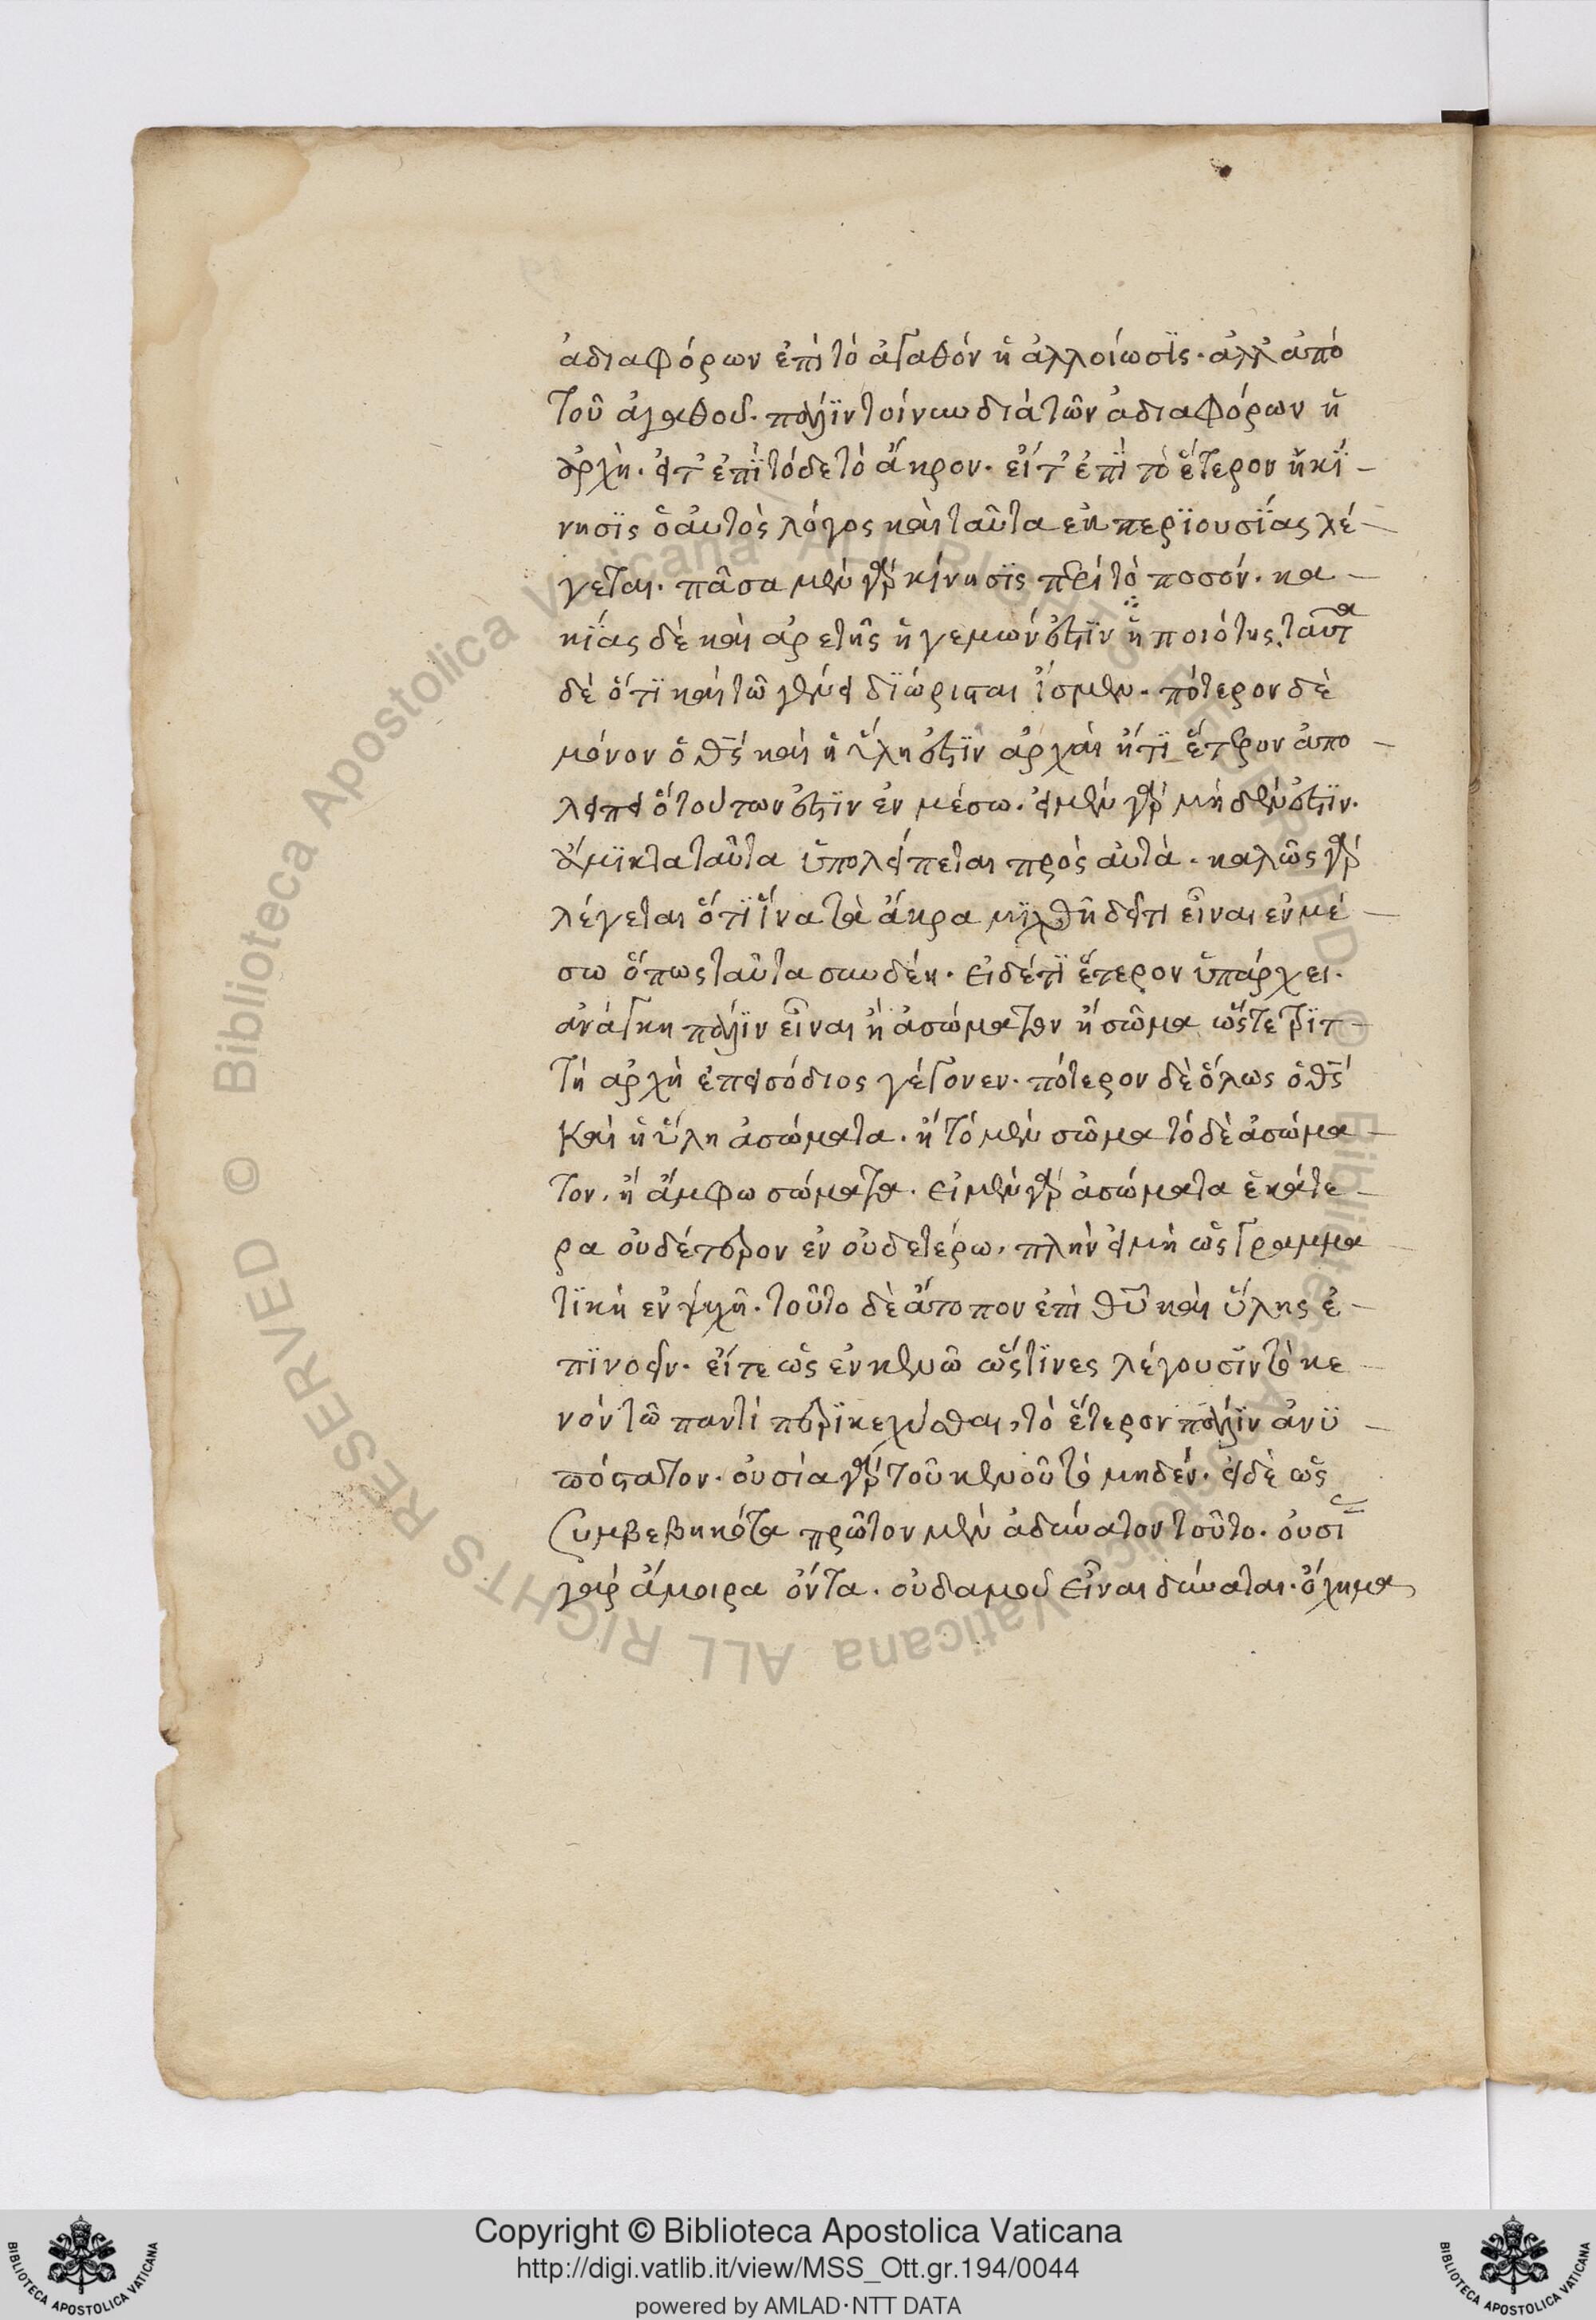 ἀδιαφόρων ἐπὶ τὸ ἀγαθόν ἡ ἀλλοίωσϊς. ἀλλ' ἀπὸ
τοῦ ἀγαθοῦ. πάλϊν τοίνυν διὰ τῶν ἀδιαφόρων ἡ
ἀρχὴ. εἴτ' ἐπϊ τόδε τὸ ἄκρον. εἴτ' ἐπϊ τὸ ἕτερον ἡ κί-
νησϊς ὁ αὐτὸς λόγος καὶ ταῦτα ἐκ περϊουσΐας λέ-
γεται. πᾶσα μὲν γὰρ κίνησϊς περὶ τὸ ποσόν. κα-
κΐας δὲ καὶ ἀρετῆς ἡγεμών ἐστϊν ἡ ποιότης. ταῦτα
δὲ ὅτϊ καὶ τῶ γένει δϊώρισται ἴσμεν. πότερον δὲ
μόνον ὁ θς καὶ ἡ ὕλη ἐστϊν ἀρχαὶ ἤ τϊ ἕτερον ἀπο-
λείπει ὃ τούτων ἐστϊν ἐν μέσω. εἰ μὲν γὰρ μηδέν ἐστϊν.
ἄμϊκτα ταῦτα ὑπολείπεται πρὸς αὐτά. καλῶς γὰρ
λέγεται ὅτϊ ἵνα τὰ ἄκρα μϊχθῆ δεῖ τι εἶναι ἐν μέ-
σω ὅπως ταῦτα συνδέη. εἰ δέ τϊ ἕτερον ὑπάρχει.
ἀνάγκη πάλϊν εἶναι ἢ ἀσώματον ἢ σῶμα ὥστε τρϊτ-
τὴ ἀρχὴ ἐπεισόδιος γέγονεν. πότερον δὲ ὅλως ὁ θς
καὶ ἡ ὕλη ἀσώματα. ἢ τὸ μὲν σῶμα τὸ δὲ ἀσώμα-
τον. ἢ ἄμφω σώματα. εἰ μὲν γὰρ ἀσώματα ἑκάτε-
ρα οὐδέτερον ἐν οὐδετέρω. πλὴν εἰ μὴ ὡς γραμμα-
τϊκὴ ἐν ψυχῆ. τοῦτο δὲ ἄτοπον ἐπὶ θυ καὶ ὕλης ἐ-
πϊνοεῖν. εἴτε ὡς ἐν κενῶ ὥς τϊνες λέγουσϊν τὸ κε-
νὸν τῶ παντὶ περϊκεχύσθαι, τὸ ἕτερον πάλϊν ἀνϋ-
πόστατον. οὐσία γὰρ τοῦ κενοῦ τὸ μηδέν. εἰ δὲ ὡς
συμβεβηκότα πρῶτον μὲν ἀδύνατον τοῦτο. οὐσΐας
γὰρ ἄμοιρα ὄντα. οὐδαμοῦ εἶναι δύναται. ὄχημα
Copyright © Biblioteca Apostolica Vaticana
http://digi.vatlib.it/view/MSS_Ott.gr.194/0044
powered by AMLAD·NTT DATA